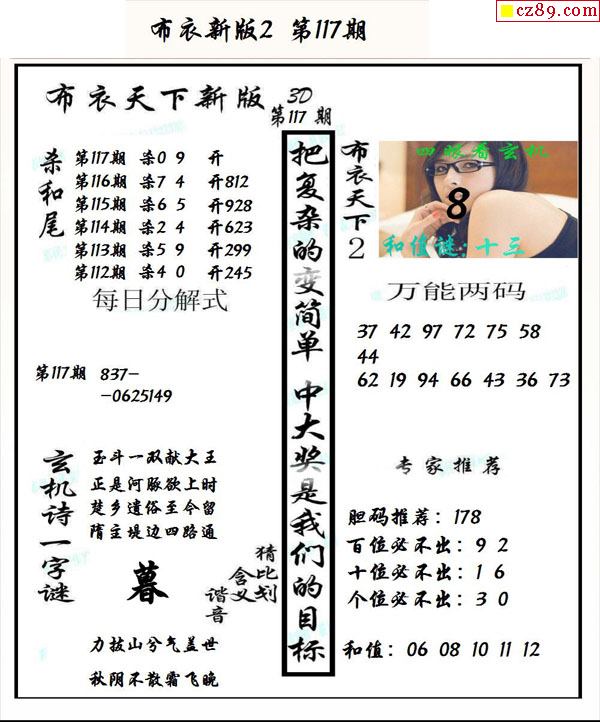 cz89.com
布衣新版2 第117期
布衣天下新版 3D
第117期
杀和尾
第117期 杀0 9 开
第116期 杀7 4 开812
第115期 杀6 5 开928
第114期 杀2 4 开623
第113期 杀5 9 开299
第112期 杀4 0 开245
每日分解式
第117期 837-
-0625149
玄机诗一字谜
玉斗一双献大王
正是河豚欲上时
楚乡遗俗至今留
隋主堤边四路通
暮
猜比划
含义
谐音
力拔山兮气盖世
秋阴不散霜飞晚
把复杂的变简单 中大奖是我们的目标
布衣天下2
四眼看玄机
8
和值谜：十三
万能两码
37 42 97 72 75 58
44
62 19 94 66 43 36 73
专家推荐
胆码推荐：178
百位必不出：9 2
十位必不出：1 6
个位必不出：3 0
和值：06 08 10 11 12